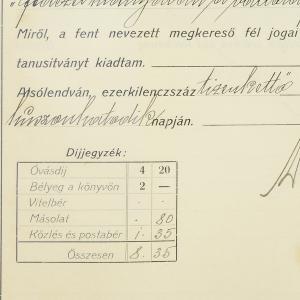 Miről, a fent nevezett megkereső fél jogai
tanusitványt kiadtam.
Alsólendván, ezerkilenczszáz tizenkettő
huszonhatodik napján.
Díjjegyzék:
Óvásdij 4 20
Bélyeg a könyvön 2 —
Vitelbér . .
Másolat . 80
Közlés és postabér 1. 35
Összesen 8. 35